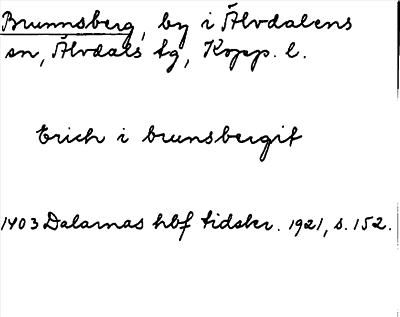 Brunnsberg, by i Älvdalens
sn, Älvdals tg, Kopp. l.
Erich i brunsbergit
1403 Dalarnas hbf tidskr. 1921, s. 152.